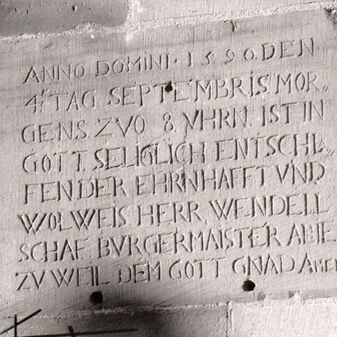 ANNO DOMINI · 1590 DEN
4 TAG SEPTEMBRIS MOR„
GENS ZVO 8 VHRN IST IN
GOTT SELIGLICH ENTSCHL„
FEN DER EHRNHAFFT VND
WOLWEIS HERR WENDELL
SCHAF BVRGERMAISTER ALHIE
ZV WEIL DEM GOTT GNAD AMEN